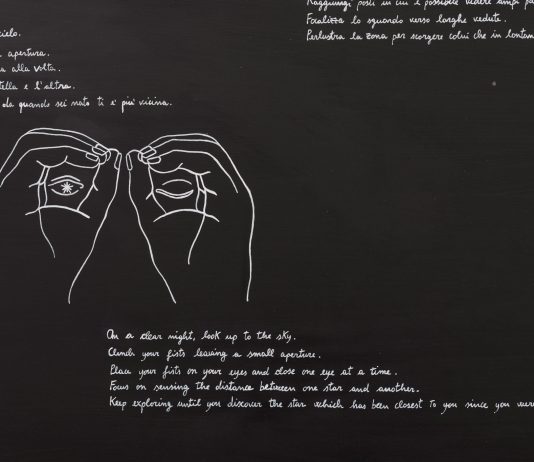 Raggiungi posti in cui è possibile vedere ampi
Focalizza lo sguardo verso larghe vedute.
Perlustra la zona per scorgere colui che in lontan
cielo.
apertura.
alla volta.
tella e l'altra.
da quando sei nato ti è più vicina.
On a clear night, look up to the sky.
Climb your fists leaving a small aperture.
Place your fists on your eyes and close one eye at a time.
Focus on sensing the distance between one star and another.
Keep exploring until you discover the star which has been closest to you since you were